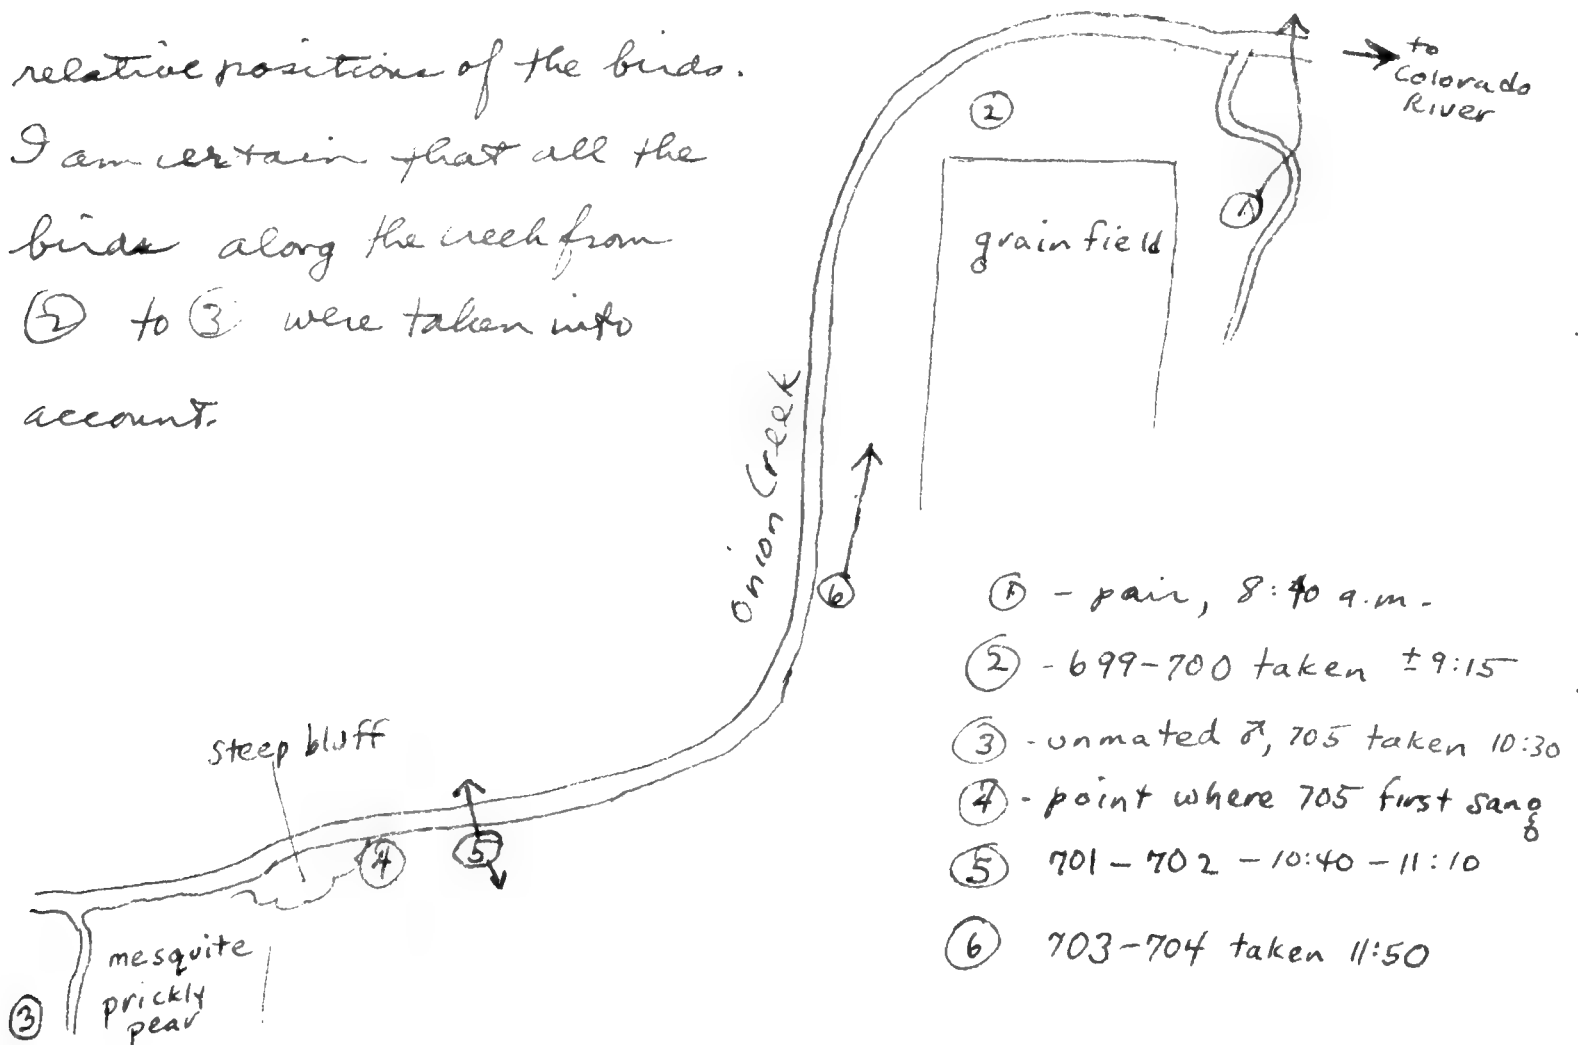 relative positions of the birds.
I am certain that all the
birds along the creek from
② to ③ were taken into
account.
to
Colorado
River
②
①
grain field
Onion Creek
⑥
steep bluff
④
⑤
mesquite
prickly
pear
③
① - pair, 8:40 a.m.
② - 699-700 taken ± 9:15
③ - unmated ♂, 705 taken 10:30
④ - point where 705 first sang
⑤ 701 - 702 - 10:40 - 11:10
⑥ 703-704 taken 11:50